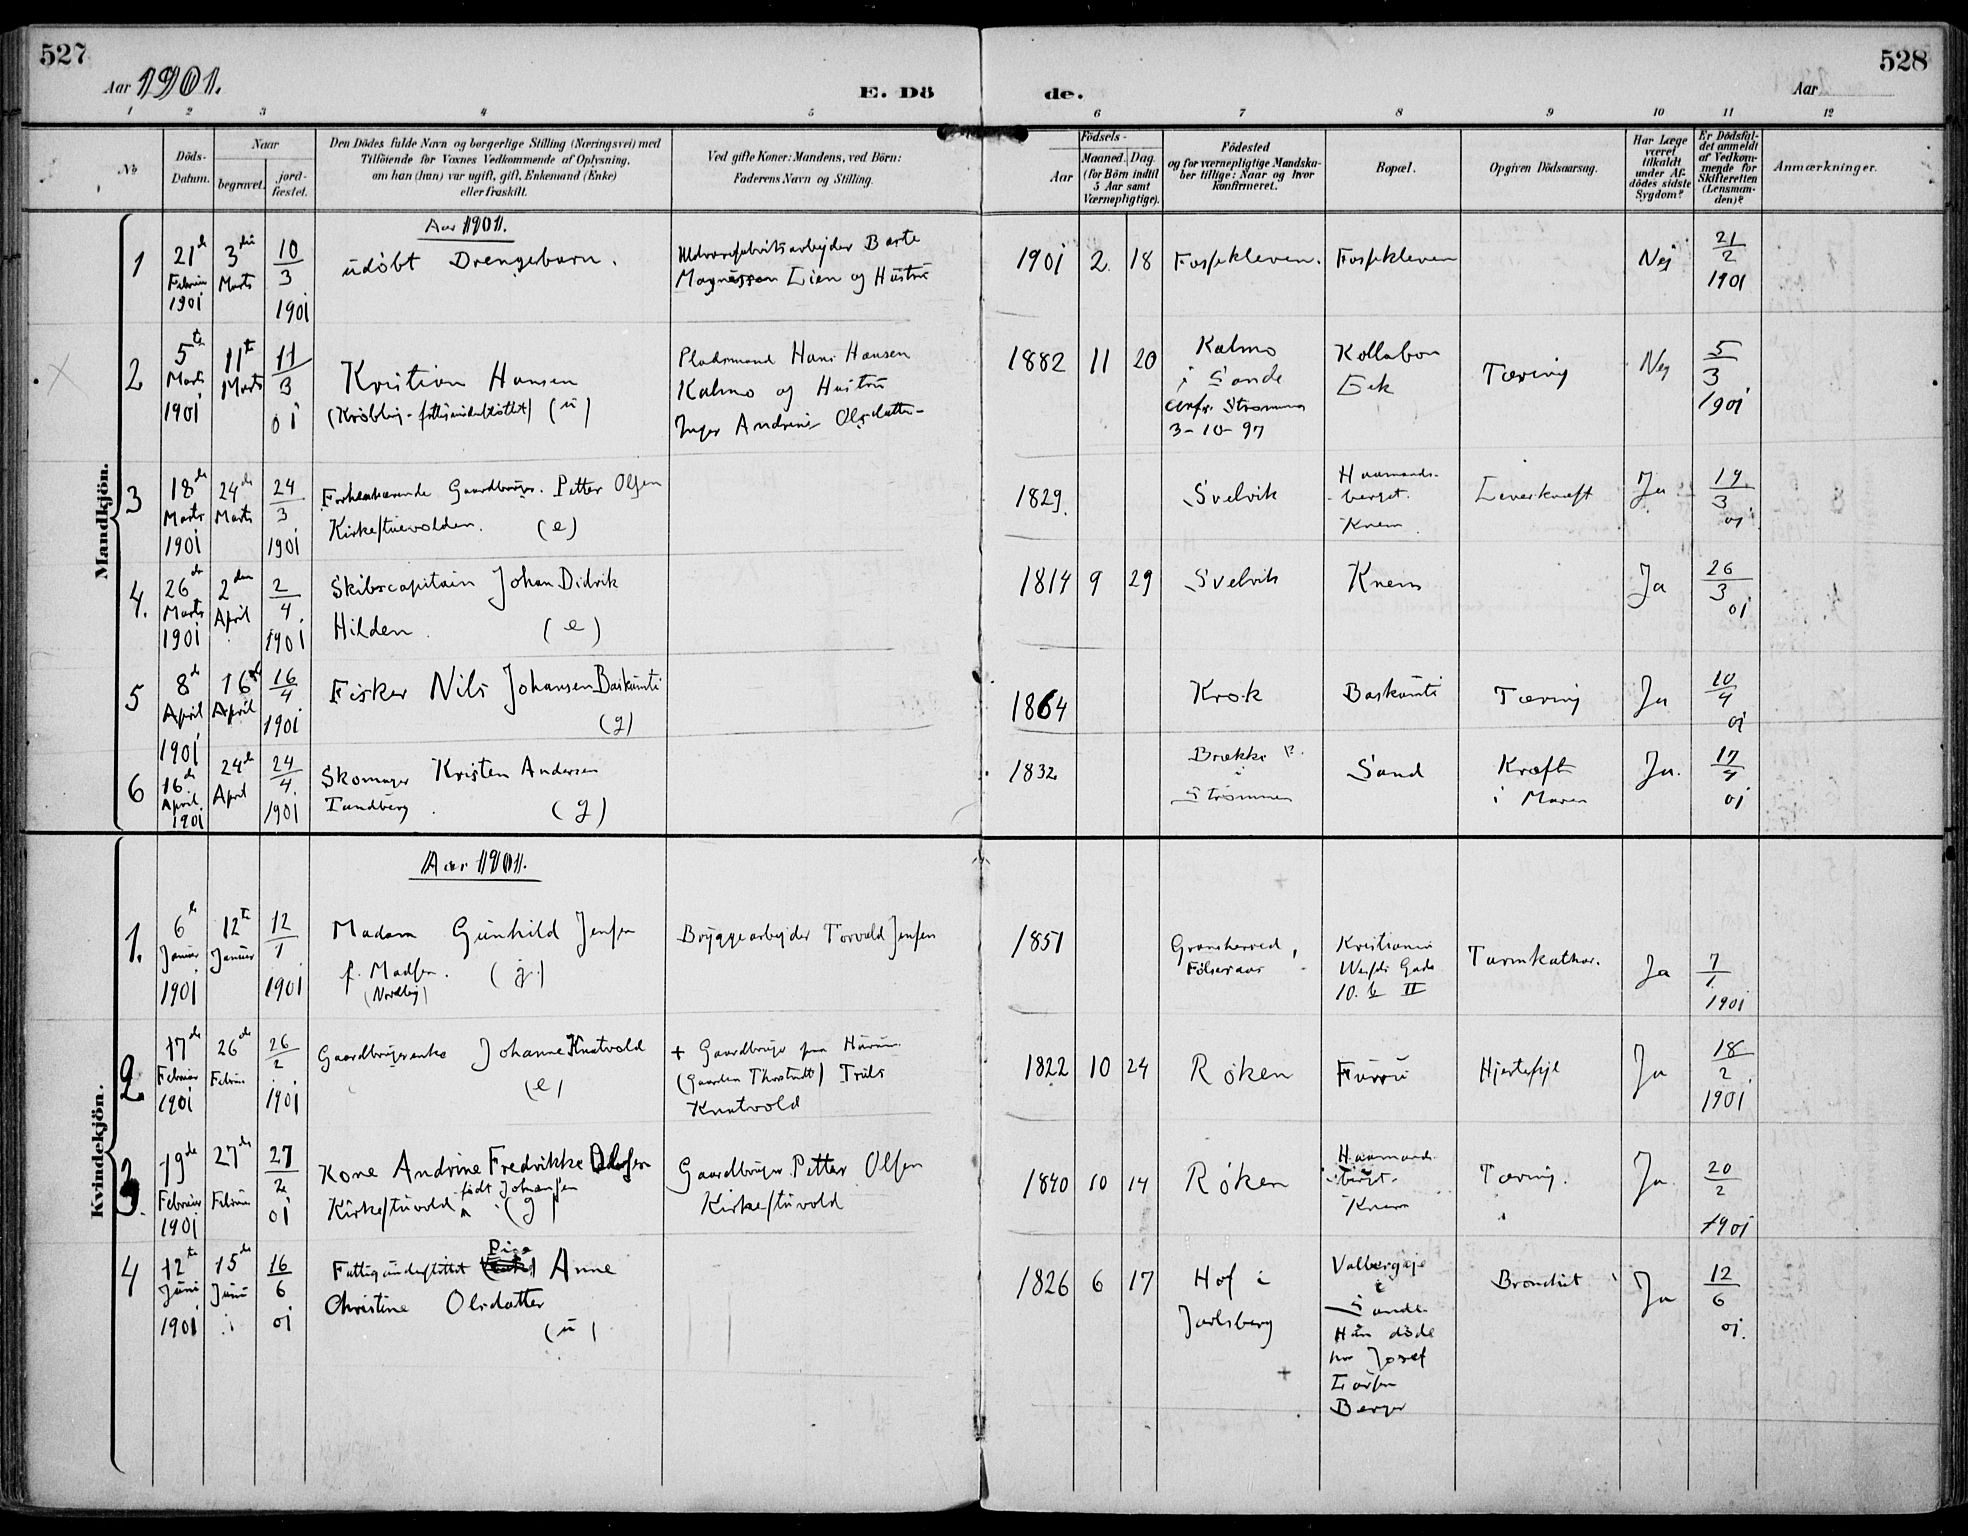 527
Aar 1901.
E. Dö
de.
Aar
528
1 2 3 4 5 6 7 8 9 10 11 12
No
Döds-
Datum.
Naar
begravet.
jord-
fæstet.
Den Dödes fulde Navn og borgerlige Stilling (Næringsvei) med
Tilföiende for Voxnes Vedkommende af Oplysning.
om han (hun) var ugift, gift, Enkemand (Enke)
eller fraskilt.
Ved gifte Koner: Mandens, ved Börn:
Faderens Navn og Stilling.
Födsels-
Aar
Maaned.
Dag.
(for Börn indtil
5 Aar samt
Værnepligtige).
Födested
og for værnepligtige Mandska-
ber tillige: Naar og hvor
konfirmeret.
Bopæl.
Opgiven Dödsaarsag.
Har Læge
været
tilkaldt
under Af-
dödes sidste
Sygdom?
Er Dödsfal-
det anmeldt
af Vedkom-
mende for
Skifteretten
(Lensman-
den)?
Anmærkninger.
Mandkjön.
Aar 1901.
1
21de
Februar
1901
3die
Marts
10
3
1901
udöbt Drengebarn.
Magnussen Lien og Hustru
1901 2 18
Fossekleven.
Fossekleven
Nej
21
2
1901
2
5te
Marts
1901
11te
Marts
11
3
01
Kristian Hansen
(Kröbling - fattigunderstöttet) (u)
Pladsmand Hans Hansen
Kalmo og Hustru
Inger Andrine Olsdatter
1882 11 20
Kalmo
i Sande
conf. Strömmen
3-10-97
Eek
Tæring
Nej
5
3
1901
3
18de
Marts
1901
24de
Marts
24
3
1901
Forhenværende Gaardbruger. Petter Olsen
Kirkestuevolden. (e)
1829.
Svelvik
Haamands-
berget.
Knem
Leverkræft
Ja
19
3
01
4.
26de
Marts
1901
2den
April
2
4.
1901
Skibscapitain Johan Didrik
Hilden. (e)
1814 9 29
Svelvik
Knem
Ja
26
3
01
5
8de
April
1901
16de
April
16
4
1901
Fisker Nils Johansen Baskunti
(g)
1864
Krok
Baskunti
Tæring
Ja
10
4
01
6
16de
April
1901
24de
April
24
4.
1901
Skomager Kristen Andersen
Tandberg. (g)
1832
Brække
i
Strömmen
Sand
Kræft
i Maven
Ja.
17
4
01
Kvindekjön.
Aar 1901.
1.
6te
Januar
1901
12te
Januar
12
1
1901
Madam Gunhild Jensen
f. Madsen. (g.)
(Nordby)
Bryggearbejder Torvald Jensen
1851
Gransherred,
Kristiania
10. b II
Tarmkathar.
Ja
7
1.
1901
2
17de
Februar
1901
26de
Februar
26
2
1901
Gaardbrugerenke Johanne Knatvold
(e)
+ Gaardbruger paa Hurum
Truls
Knatvold
1822 10 24
Röken
Furuu
Hjertefejl
Ja
18
2
1901
3.
19de
Februar
1901
27de
Februar
27
2
01
Kone Andrine Fredrikke Olsen
Kirkestuvold født Johansen (g)
Gaardbruger Petter Olsen
Kirkestuvold
1840 10 14
Röken
Haamands-
berget.
Knem
Tæring.
Ja
20
2
1901
4
12te
Juni
1901
15de
Juni
16
6
01
Fattigunderstöttet Pige Anne
Christine Olsdatter
(u)
1826 6 17
Hof i
Jarlsberg
Valbergeje
i
Sande.
Hun döde
hos Josef
Larsen
Berger
Bronchit
Ja
12
6
01.